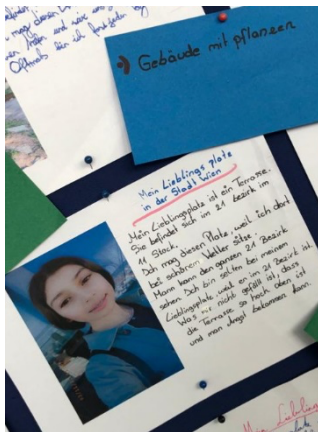 mag diesen
Gebäude mit pflanzen
Mein Lieblings platz
in der Stadt Wien
Mein Lieblingsplatz ist ein Terrasse.
Sie befindet sich im 21 Bezirk im
11 Stock.
Ich mag diesen Platz, weil ich dort
bei schönem Wetter sitze.
Mann kann den ganzen 21 Bezirk
sehen. Ich bin selten bei meinem
Lieblingsplatz, weil er im 21 Bezirk ist.
Was mir nicht gefällt ist, dass
die Terrasse so hoch oben ist
und man Angst bekommen kann.
Mein Liebling